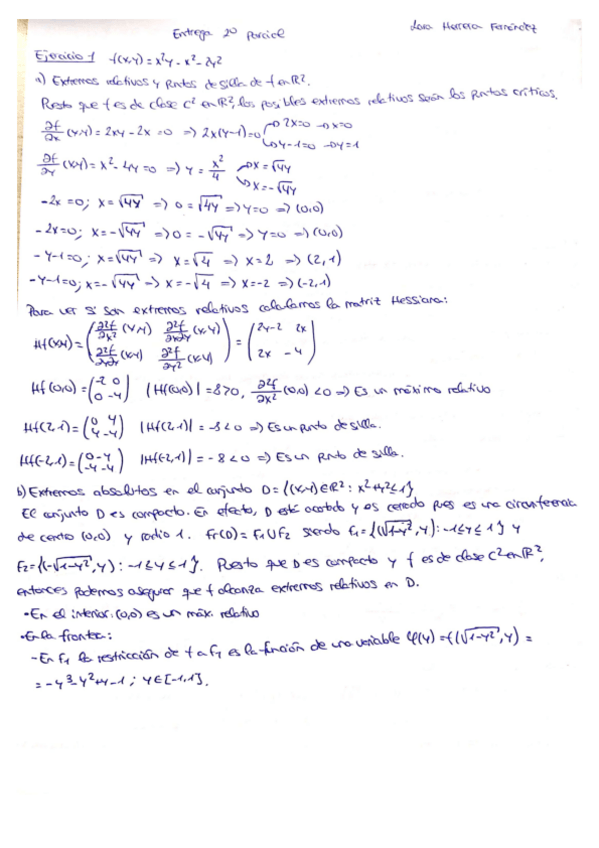 Entrega 2º Parcial
Lara Herrera Fernández
Ejercicio 1 f(x,y)=x²y-x²-2y²
a) Extremos relativos y puntos de silla de f en ℝ².
Puesto que f es de clase C² en ℝ², los posibles extremos relativos serán los puntos críticos.
∂f/∂x (x,y) = 2xy-2x = 0 => 2x(y-1)=0 → 2x=0 → x=0
→ y-1=0 → y=1
∂f/∂y (x,y) = x²-4y=0 => y = x²/4 → x=√4y
→ x=-√4y
-2x=0; x=√4y => 0=√4y => y=0 => (0,0)
-2x=0; x=-√4y => 0=-√4y => y=0 => (0,0)
-y-1=0; x=√4y => x=√4 => x=2 => (2,1)
-y-1=0; x=-√4y => x=-√4 => x=-2 => (-2,1)
Para ver si son extremos relativos calculamos la matriz Hessiana:
Hf(x,y)= (∂²f/∂x² (x,y) ∂²f/∂x∂y (x,y) ; ∂²f/∂y∂x (x,y) ∂²f/∂y² (x,y)) = (2y-2 2x ; 2x -4)
Hf(0,0)=(-2 0 ; 0 -4) |Hf(0,0)|=8>0, ∂²f/∂x² (0,0)<0 => Es un máximo relativo
Hf(2,1)=(0 4 ; 4 -4) |Hf(2,1)|=-8<0 => Es un punto de silla.
Hf(-2,1)=(0 -4 ; -4 -4) |Hf(-2,1)|=-8<0 => Es un punto de silla.
b) Extremos absolutos en el conjunto D={(x,y)∈ℝ²: x²+y²≤1}
El conjunto D es compacto. En efecto, D está acotado y es cerrado pues es una circunferencia
de centro (0,0) y radio 1. Fr(D)=F₁∪F₂ siendo F₁={(√1-y², y): -1≤y≤1} y
F₂={(-√1-y², y): -1≤y≤1}. Puesto que D es compacto y f es de clase C² en ℝ²,
entonces podemos asegurar que f alcanza extremos relativos en D.
• En el interior: (0,0) es un máx. relativo
• En la frontera:
- En F₁ la restricción de f a F₁ es la función de una variable φ(y)=f(√1-y², y)=
=-y³-y²+y-1; y∈[-1,1].